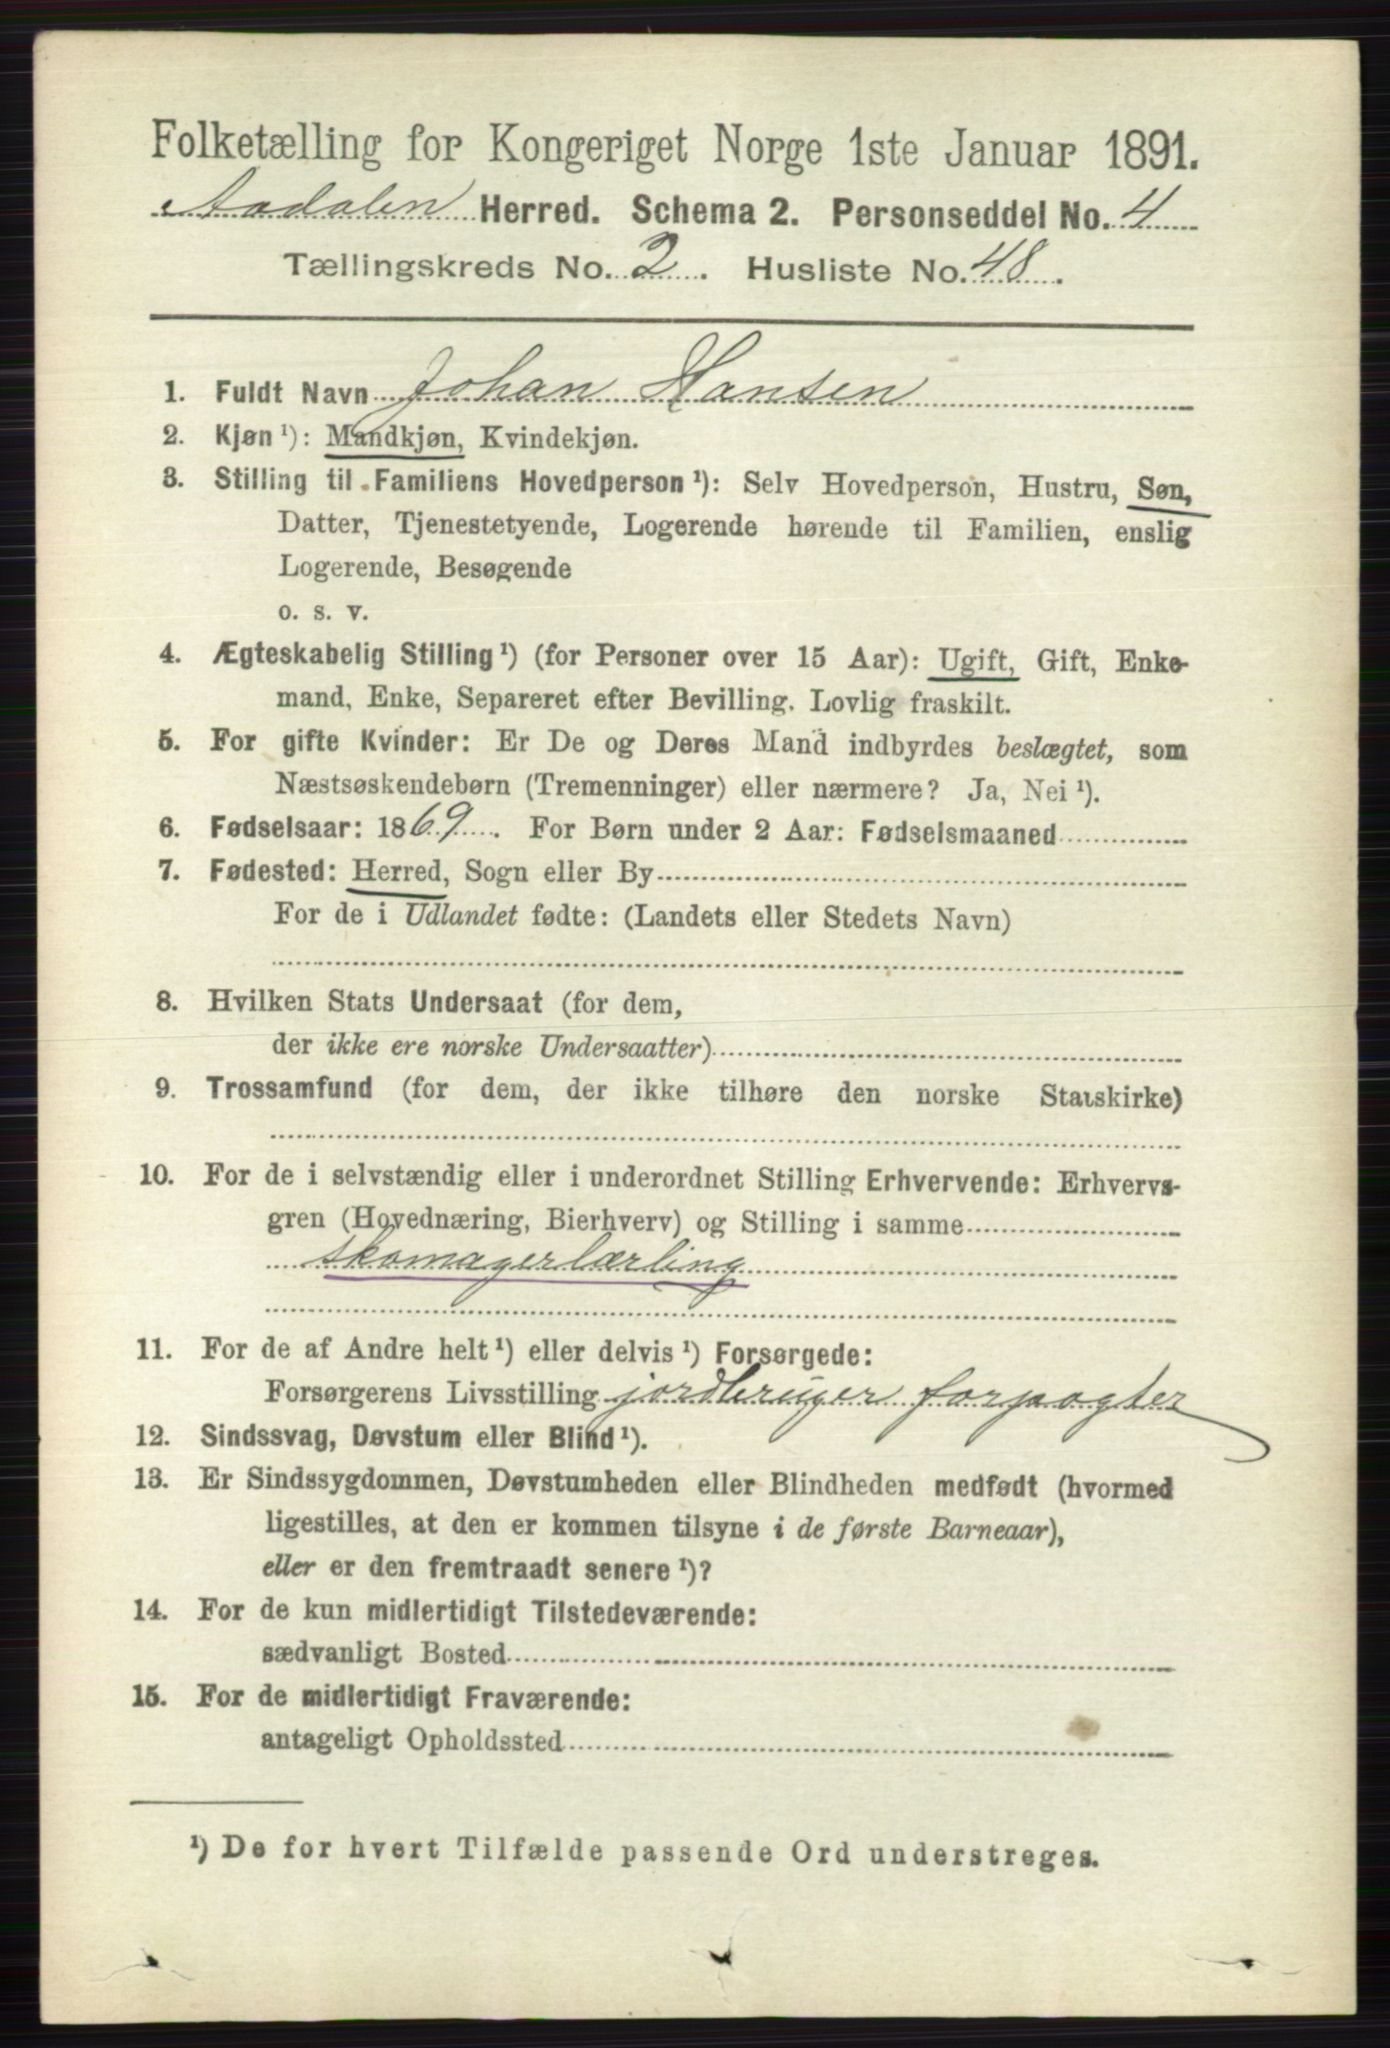 Folketælling for Kongeriget Norge 1ste Januar 1891.
Aadalen Herred. Schema 2. Personseddel No. 4
Tællingskreds No. 2. Husliste No. 48.
1. Fuldt Navn Johan Hansen
2. Kjøn ¹): Mandkjøn, Kvindekjøn.
3. Stilling til Familiens Hovedperson ¹): Selv Hovedperson, Hustru, Søn,
Datter, Tjenestetyende, Logerende hørende til Familien, enslig
Logerende, Besøgende
o. s. v.
4. Ægteskabelig Stilling ¹) (for Personer over 15 Aar): Ugift, Gift, Enke-
mand, Enke, Separeret efter Bevilling. Lovlig fraskilt.
5. For gifte Kvinder: Er De og Deres Mand indbyrdes beslægtet, som
Næstsøskendebørn (Tremenninger) eller nærmere? Ja, Nei ¹).
6. Fødselsaar: 1869. For Børn under 2 Aar: Fødselsmaaned
7. Fødested: Herred, Sogn eller By
For de i Udlandet fødte: (Landets eller Stedets Navn)
8. Hvilken Stats Undersaat (for dem,
der ikke ere norske Undersaatter)
9. Trossamfund (for dem, der ikke tilhøre den norske Statskirke)
10. For de i selvstændig eller i underordnet Stilling Erhvervende: Erhvervs-
gren (Hovednæring, Bierhverv) og Stilling i samme
skomagerlærling
11. For de af Andre helt ¹) eller delvis ¹) Forsørgede:
Forsørgerens Livsstilling jordbruger forpagter
12. Sindssvag, Døvstum eller Blind ¹).
13. Er Sindssygdommen, Døvstumheden eller Blindheden medfødt (hvormed
ligestilles, at den er kommen tilsyne i de første Barneaar),
eller er den fremtraadt senere ¹)?
14. For de kun midlertidigt Tilstedeværende:
sædvanligt Bosted
15. For de midlertidigt Fraværende:
antageligt Opholdssted
¹) De for hvert Tilfælde passende Ord understreges.